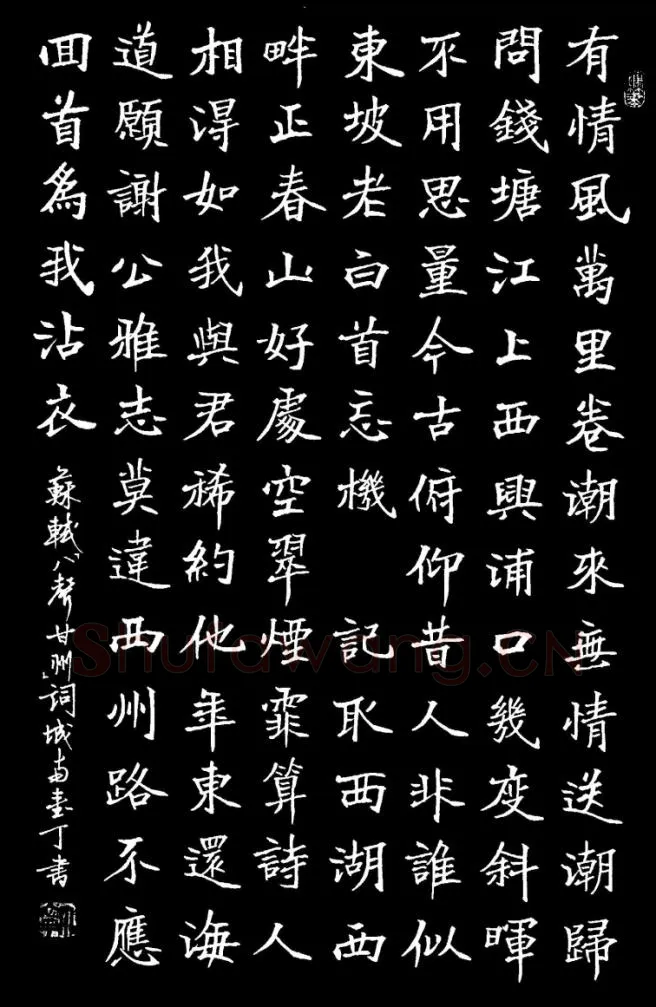 有情風萬里卷潮來無情送潮歸
問錢塘江上西興浦口幾度斜暉
不用思量今古俯仰昔人非誰似
東坡老白首忘機 記取西湖西
畔正春山好處空翠煙霏算詩人
相得如我與君稀約他年東還海
道願謝公雅志莫違西州路不應
回首爲我沾衣
蘇軾「八聲甘州」詞城南丁書
Shufawang.CN